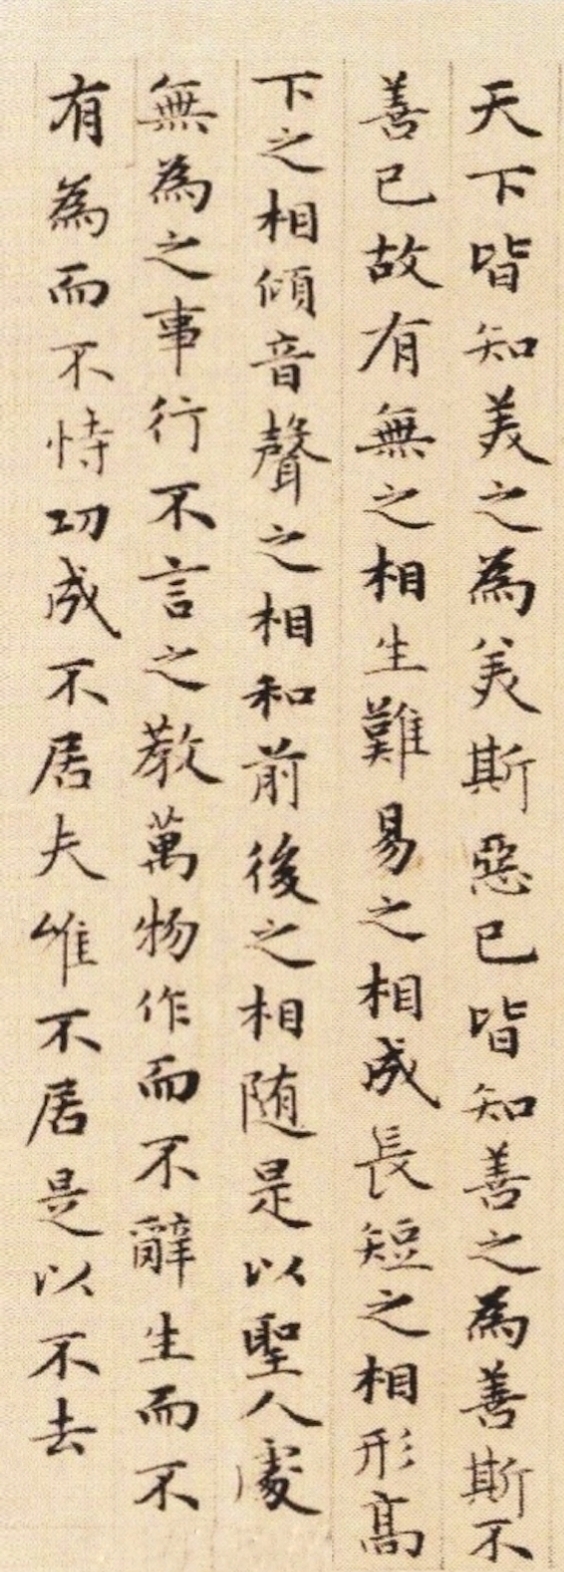 天下皆知美之為美斯惡已皆知善之為善斯不
善已故有無之相生難易之相成長短之相形高
下之相傾音聲之相和前後之相随是以聖人處
無為之事行不言之教萬物作而不辭生而不
有為而不恃功成不居夫惟不居是以不去